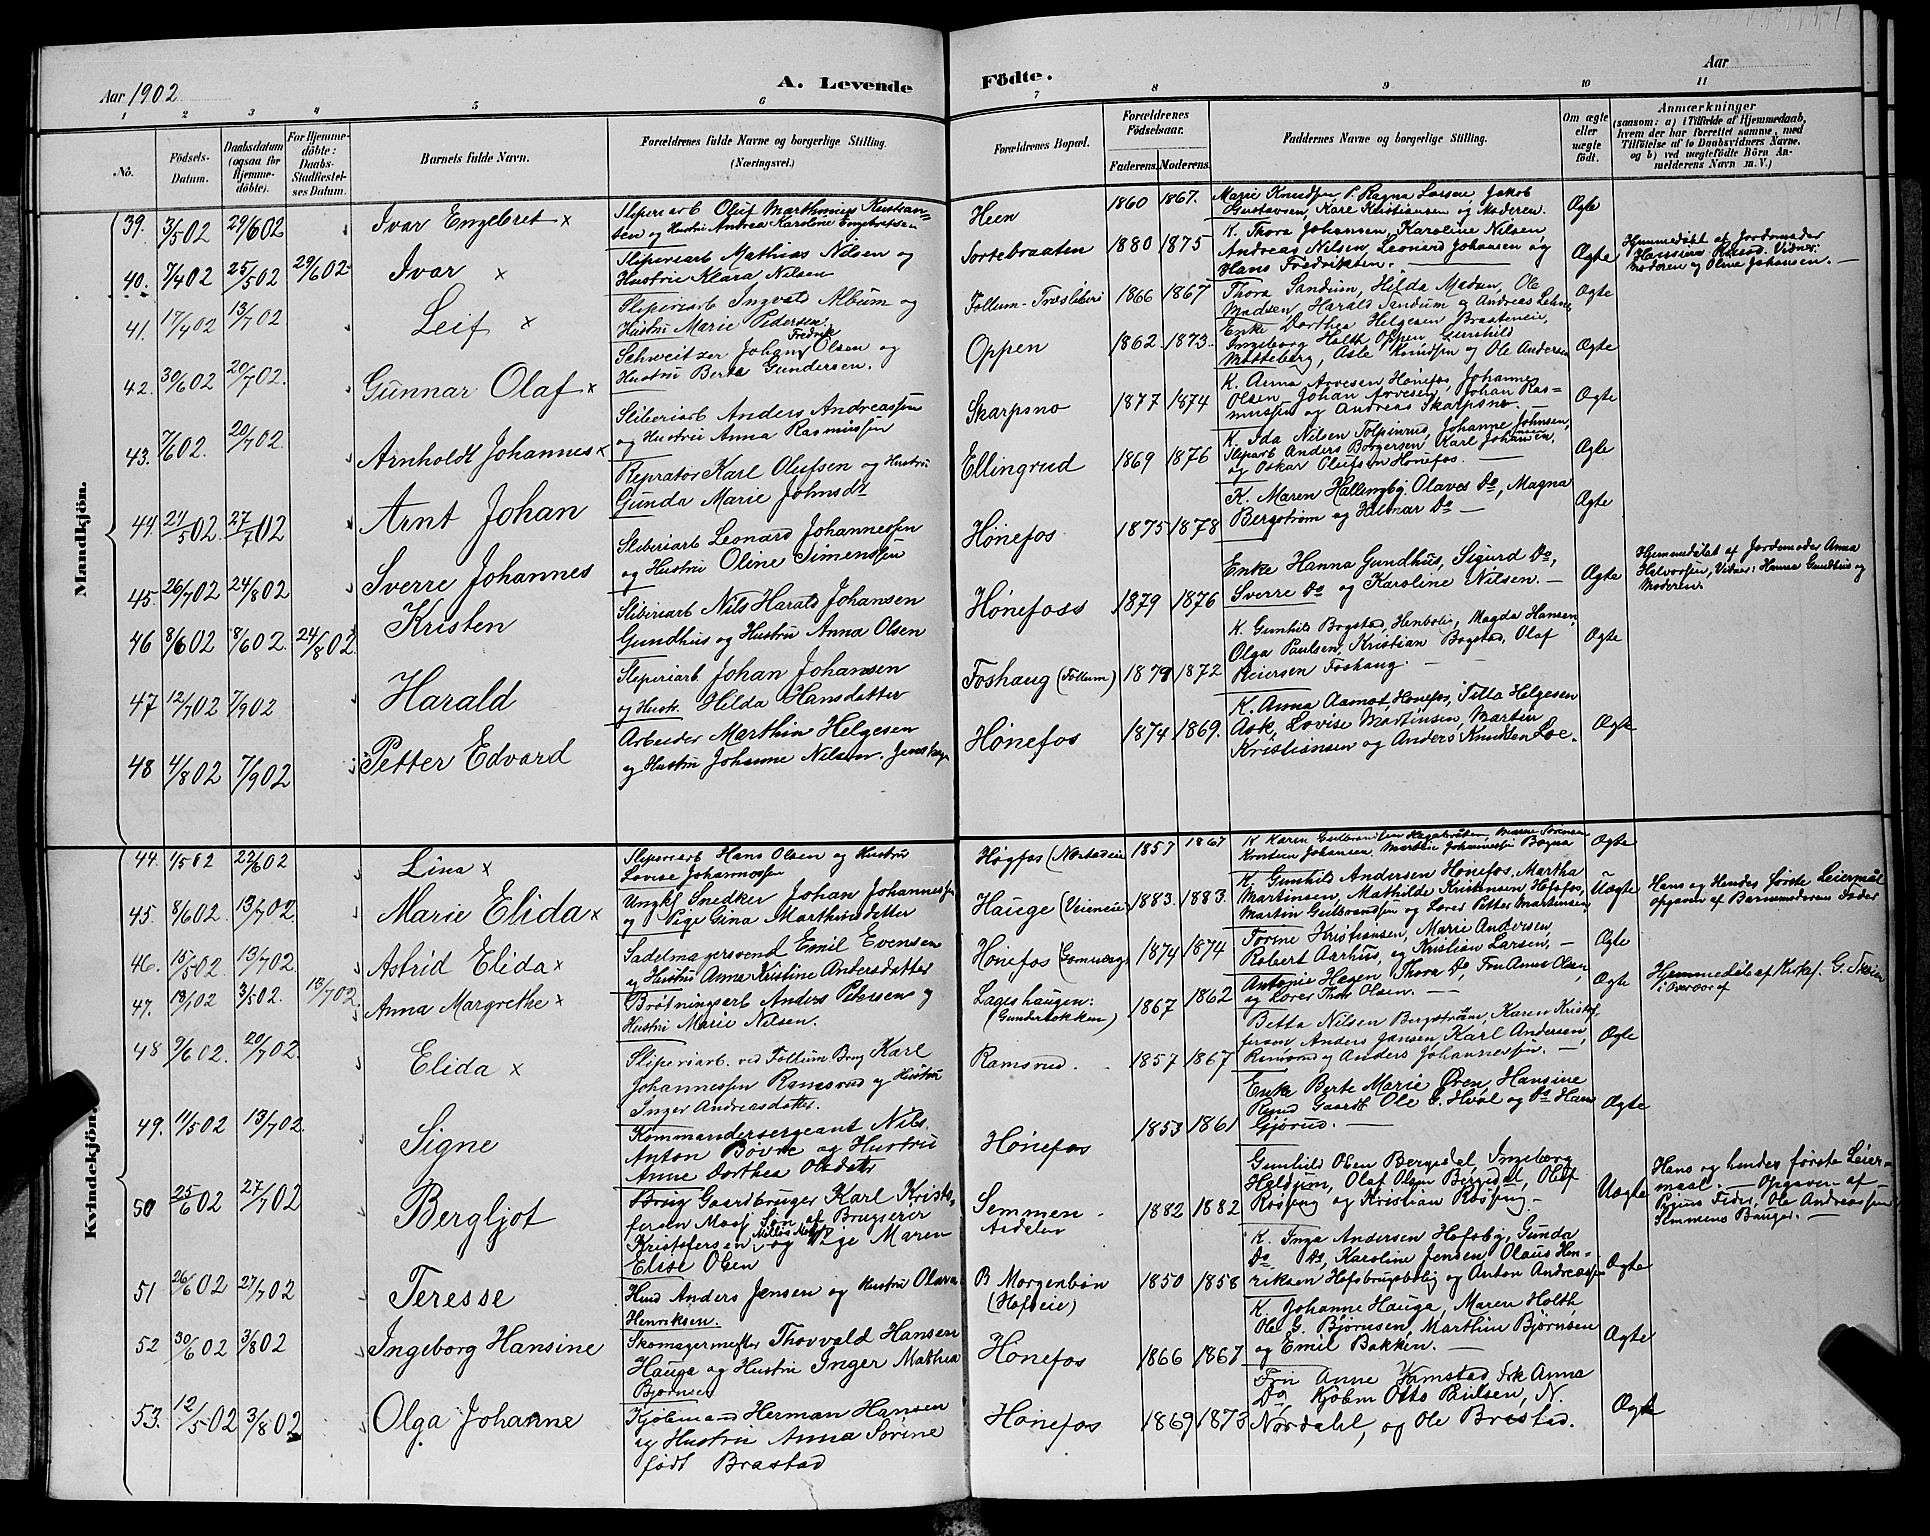 Aar 1902
A. Levende Födte.
Aar
1 2 3 4 5 6 7 8 9 10 11
No.
Födsels-Datum.
Daabsdatum (ogsaa for Hjemme-döbte).
For Hjemme-döbte: Daabs-Stadfæstel-ses Datum.
Barnets fulde Navn.
Forældrenes fulde Navne og borgerlige Stilling.
(Næringsvei.)
Forældrenes Bopæl.
Forældrenes Födselsaar.
Faderens. Moderens.
Faddernes Navne og borgerlige Stilling.
Om ægte eller uægte födt.
Anmærkninger
(saasom: a) i Tilfælde af Hjemmedaab, hvem der har forrettet samme, med Tilföielse af to Daabsvidners Navne, og b) ved uægtefödte Börn An-melderens Navn m. V.)
Mandkjön.
39. 3/5 02 29/6 02 Ivar Engebret x
Sliperiarb Oluf Marthinius Kristian-
sen og Hustru Andrea Karoline Engebretsen
Heen 1860 1867.
Marie Knudsen, P. Ragna Larsen, Jakob
Gustavsen, Karl Kristiansen og Moderen.
Ægte
40. 7/4 02 25/5 02 29/6 02 Ivar x
Sliperiarb Mathias Nilsen og
Hustru Klara Nilsen
Sortebraaten 1880 1875
K. Thora Johansen, Karoline Nilsen,
Andreas Nilsen, Leonard Johansen og
Hans Fredriksen.
Ægte
Hjemmedøbt af Jordemoder
Hansine Rusud. Vidner:
Moderen og Oline Johansen.
41. 17/4 02 13/7 02 Leif x
Sliperiarb Ingvald Album og
Hustru Marie Pedersen.
Follum-Træsliberi 1866 1867
Thora Sandum, Hilda Madsen, Ole
Madsen, Harald Sandum og Andreas
Ægte
42. 30/6 02 20/7 02. Gunnar Olaf x
Schweitzer Johan Fredrik Olsen og
Hustru Berta Gundersen.
Oppen 1862 1873.
Enke Dorthea Helgesen Braateneie,
Ingeborg Holth Oppen, Gunhild
Mosteberg, Asle Knudsen og Ole Andersen
Ægte
43. 7/6 02. 20/7 02. Arnholdt Johannes x
Sliberiarb Anders Andreassen
og Hustru Anna Rasmussen
Skarpsno 1877 1874
K. Anna Arvesen Hønefos, Johanne
Olsen, Johan Arvesen, Johan Ras-
mussen og Andreas Skarpsno.
Ægte
44. 24/5 02. 27/7 02 Arnt Johan
Reprator Karl Olufsen og Hustru
Gunda Marie Johnsdt
Ellingrud 1869 1876
K. Ida Nilsen Tolpinrud, Johanne Johnsen,
Sliparb Anders Borgersen, Karl Johansen,
og Oskar Olufsen Hønefos.
Ægte
45. 26/7 02 24/8 02 Sverre Johannes
Sliberiarb Leonard Johannessen
og Hustru Oline Simensen
Hønefos 1875 1878
K. Maren Hallingby, Olaves Do, Magna
Bergstrøm og Hilmar Do
Ægte
46 8/6 02 8/6 02. 24/8 02. Kristen
Sliberiarb Nils Harald Johansen
Gundhus og Hustru Anna Olsen
Hønefoss 1879 1876
Enke Hanna Gundhus, Sigurd Do,
Sverre Do og Karoline Nilsen.
Ægte
Hjemmedøbt af Jordemoder Anna
Halvorsen, Vidner: Hanna Gundhus og
Moderen.
47 12/7 02 7/9 02 Harald
Sliperiarb Johan Johansen
og Hustr. Hilda Hansdatter
Foshaug (Follum) 1879 1872
K. Gunhild Bogstad, Henbole, Magda Hansen,
Olga Paulsen, Kristian Bogstad, Olaf
Reiersen Foshaug.
Ægte
48 4/8 02 7/9 02 Petter Edvard
Arbeider Marthin Helgesen
og Hustru Johanne Nilsen.
Hønefos 1874 1869.
K. Anna Aamot, Hønefos, Titta Helgesen
Ask, Lovise Martinsen, Martin
Kristiansen og Anders Knudsen Loe.
Ægte
Kvindekjön.
44. 1/5 02 22/6 02 Lina x
Sliperiarb Hans Olsen og Hustru
Lovise Johannessen
Høgfos 1857 1867
K Karen Gulbrandsen Maren Sørensen
Kristian Johansen. Marthin Johannessen Bogna
Ægte
45. 8/6 02. 13/7 02. Marie Elida x
Ungkl Snedker Johan Johannessen
og Pige Gina Marthinsdatter
Hauge (Veieneie) 1883. 1883.
K. Gunhild Andersen Hønefos, Martha
Martinsen, Mathilde Kristensen Hofsfos,
Martin Gulbrandsen og Lærer Petter Martinsen,
Uægte
Hans og Hendes første Leiermål
opgaven af Barnemoderens Fader
46. 15/5 02. 13/7 02. Astrid Elida x
Sadelmagersvend Emil Evensen
og Hustru Anna Kristine Andersdatter
Hønefos 1874 1874
Torine Kristiansen, Marie Andersen,
Robert Aarhus, og Kristian Larsen,
Ægte
47. 13/1 02 3/5 02. 13/7 02. Anna Margrethe x
Brøtningsarb Anders Petersen og
Hustru Marie Nilsen.
Lageshaugen:
(Gunderløkken) 1867 1862
Antonie Hagen, Thora Do, Fru Anne Olsen,
og Lærer Thor Olsen.
Ægte
Hjemmedøbt af Kirkes. G.
i Overvær af
48 9/6 02. 20/7 02. Elida x
Sliperiarb. ved Follum Brug Karl
Johannessen Ramsrud og Hustru
Inger Andreasdatter.
Ramsrud. 1857 1867
Betta Nilsen Bergstrøm, Karen Kristof-
fersen, Anders Jansen, Karl Andersen,
Ramsrud og Anders Johannessen.
Ægte
49. 11/5 02 13/7 02 Signe
Kommandersergeant Nils
Anton Bøvre og Hustru
Anne Dorthea Olsdatter
Hønefos 1853 1861
Enke Berte Marie Øren, Hansine
Rund Gaardb Ole G. Hval og Do Hans
Gjørud.
Ægte
50 25/6 02 27/7 02 Bergljot
Brug Gaardbruger Karl Kristo-
fersen Moss, Søn af Brugseier
Kristofersen, og Pige Maren
Elise Olsen
Semmen
Aasdalen 1882 1882
Gunhild Olsen Bergsdal, Ingeborg
Heldum, Olaf Olsen Bergsdal, Olaf
Rospeng og Kristian Rospeng.
Uægte
Hans og hendes første Leier-
maal. Opgaven af
Pigens Fader, Ole Andreassen,
Semmens Bauger.
51 26/6 02 27/7 02 Teresse
Husmd Anders Jensen og Hustru Olava
Henriksen.
B Morgenbøn
(Hofseie) 1850 1858
K. Inga Andersen Hofsby, Gunda
Do Do, Karoline Jensen, Olaus Hen-
riksen Hofsbrugsbolig og Anton Andreassen
Ægte
52 30/6 02 3/8 02 Ingeborg Hansine
Skomagermester Thorvald Hansen
Hauga og Hustru Inger Mathea
Bjørnsen
Hønefos 1866 1867
K. Johanne Hauga, Maren Holth,
Ole G. Bjørnsen, Marthin Bjørnsen
og Emil Bakken.
Ægte
53. 12/5 02 3/8 02 Olga Johanne
Kjøbmand Herman Hansen
og Hustru Anna Sørine
født Brastad
Hønefos 1869 1873
Fru Anne Hamstad Frk Anna
Do Kjøbm Otto Bulsen, N.
Nordahl, og Ole Brastad.
Ægte